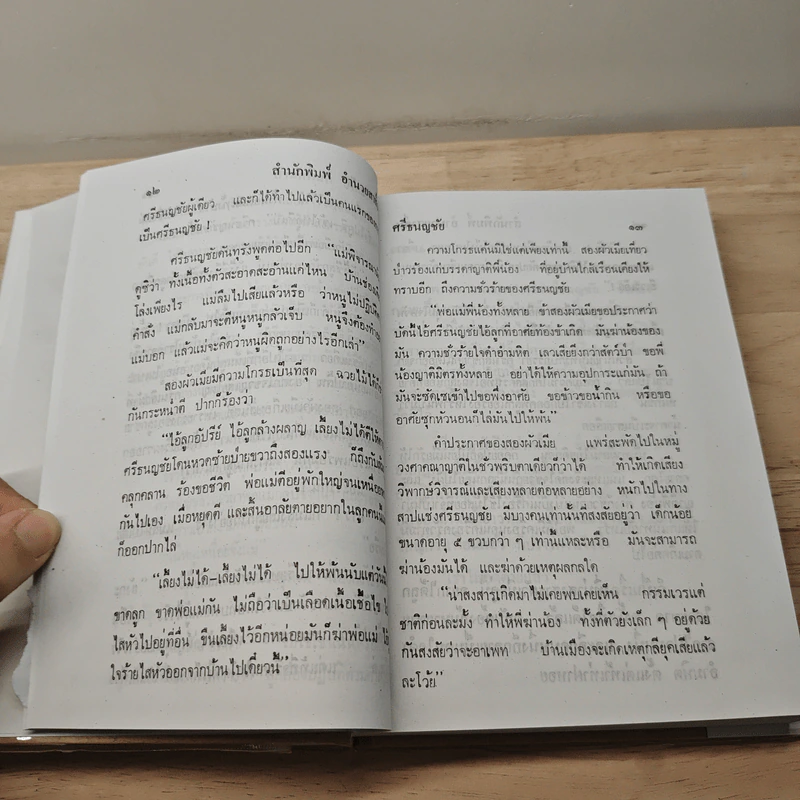 ๑๒
สำนักพิมพ์ อำนวยสา
ศรีธนญชัยผู้เดียว และก็ได้ทำไปแล้วเป็นคนแรก
เป็นศรีธนญชัย !
ศรีธนญชัยดันทุรังพูดต่อไปอีก "แม่พิจารณา
ดูซิว่า ทั้งเนื้อทั้งตัวสะอาดสะอ้านแค่ไหน บ้านช่อง
โล่งเพียงไร แม่ลืมไปเสียแล้วหรือ ว่าหนูไม่ปฏิบัติ
คำสั่ง แม่กลับมาจะตีหนูหนูกลัวเจ็บ หนูจึงต้องทำ
แม่บอก แล้วแม่จะคิดว่าหนูผิดถูกอย่างไรอีกเล่า"
สองผัวเมียมีความโกรธเป็นที่สุด ฉวยไม้ได้
กันกระหน่ำตี ปากก็ร้องว่า
"ไอ้ลูกอัปรีย์ ไอ้ลูกล้างผลาญ เลี้ยงไม่ได้
ศรีธนญชัยโดนหวดซ้ายป่ายขวาถึงสองแรง ก็ถึงกับ
คลุกคลาน ร้องขอชีวิต พ่อแม่ตีอยู่พักใหญ่จนเหนื่อย
กันไปเอง เมื่อหยุดตี และสิ้นอาลัยตายอยากในลูกคนนี้
ก็ออกปากไล่
"เลี้ยงไม่ได้–เลี้ยงไม่ได้ ไปให้พ้นนับแต่วันนี้
ขาดลูก ขาดพ่อแม่กัน ไม่ถือว่าเป็นเลือดเนื้อเชื้อไข
ไสหัวไปอยู่ที่อื่น ขืนเลี้ยงไว้อีกหน่อยมันก็ฆ่าพ่อแม่
ใจร้ายไสหัวออกจากบ้านไปเดี๋ยวนี้"
ศรีธนญชัย
๑๓
ความโกรธแค้นมิใช่แต่เพียงเท่านี้ สองผัวเมียเที่ยว
ป่าวร้องแก่บรรดาญาติพี่น้อง ที่อยู่บ้านใกล้เรือนเคียงให้
ทราบอีก ถึงความชั่วร้ายของศรีธนญชัย
"พ่อแม่พี่น้องทั้งหลาย ข้าสองผัวเมียขอประกาศว่า
บัดนี้ไอ้ศรีธนญชัยไอ้ลูกที่อาศัยท้องข้าเกิด มันฆ่าน้องของ
มัน ความชั่วร้ายใจดำอำมหิต เลวเสียยิ่งกว่าสัตว์ป่า ขอพี่
น้องญาติมิตรทั้งหลาย อย่าได้ให้ความอุปการะแก่มัน ถ้า
มันจะซัดเซเข้าไปขอพึ่งอาศัย ขอข้าวขอน้ำกิน หรือขอ
อาศัยซุกหัวนอนก็ไล่มันไปให้พ้น"
คำประกาศของสองผัวเมีย แพร่สะพัดไปในหมู่
วงศาคณาญาติในชั่วพริบตาเดียวก็ว่าได้ ทำให้เกิดเสียง
วิพากษ์วิจารณ์และเสียงหลายต่อหลายอย่าง หนักไปในทาง
สาปแช่งศรีธนญชัย มีบางคนเท่านั้นที่สงสัยอยู่ว่า เด็กน้อย
ขนาดอายุ ๕ ขวบกว่า ๆ เท่านี้แหละหรือ มันจะสามารถ
ฆ่าน้องมันได้ และฆ่าด้วยเหตุผลกลใด
"น่าสงสารเกิดมาไม่เคยพบเคยเห็น กรรมเวรแต่
ชาติก่อนละมั้ง ทำให้พี่ฆ่าน้อง ทั้งที่ตัวยังเล็ก ๆ อยู่ด้วย
กันสงสัยว่าจะอาเพท บ้านเมืองจะเกิดเหตุกลียุคเสียแล้ว
ละโว้ย"